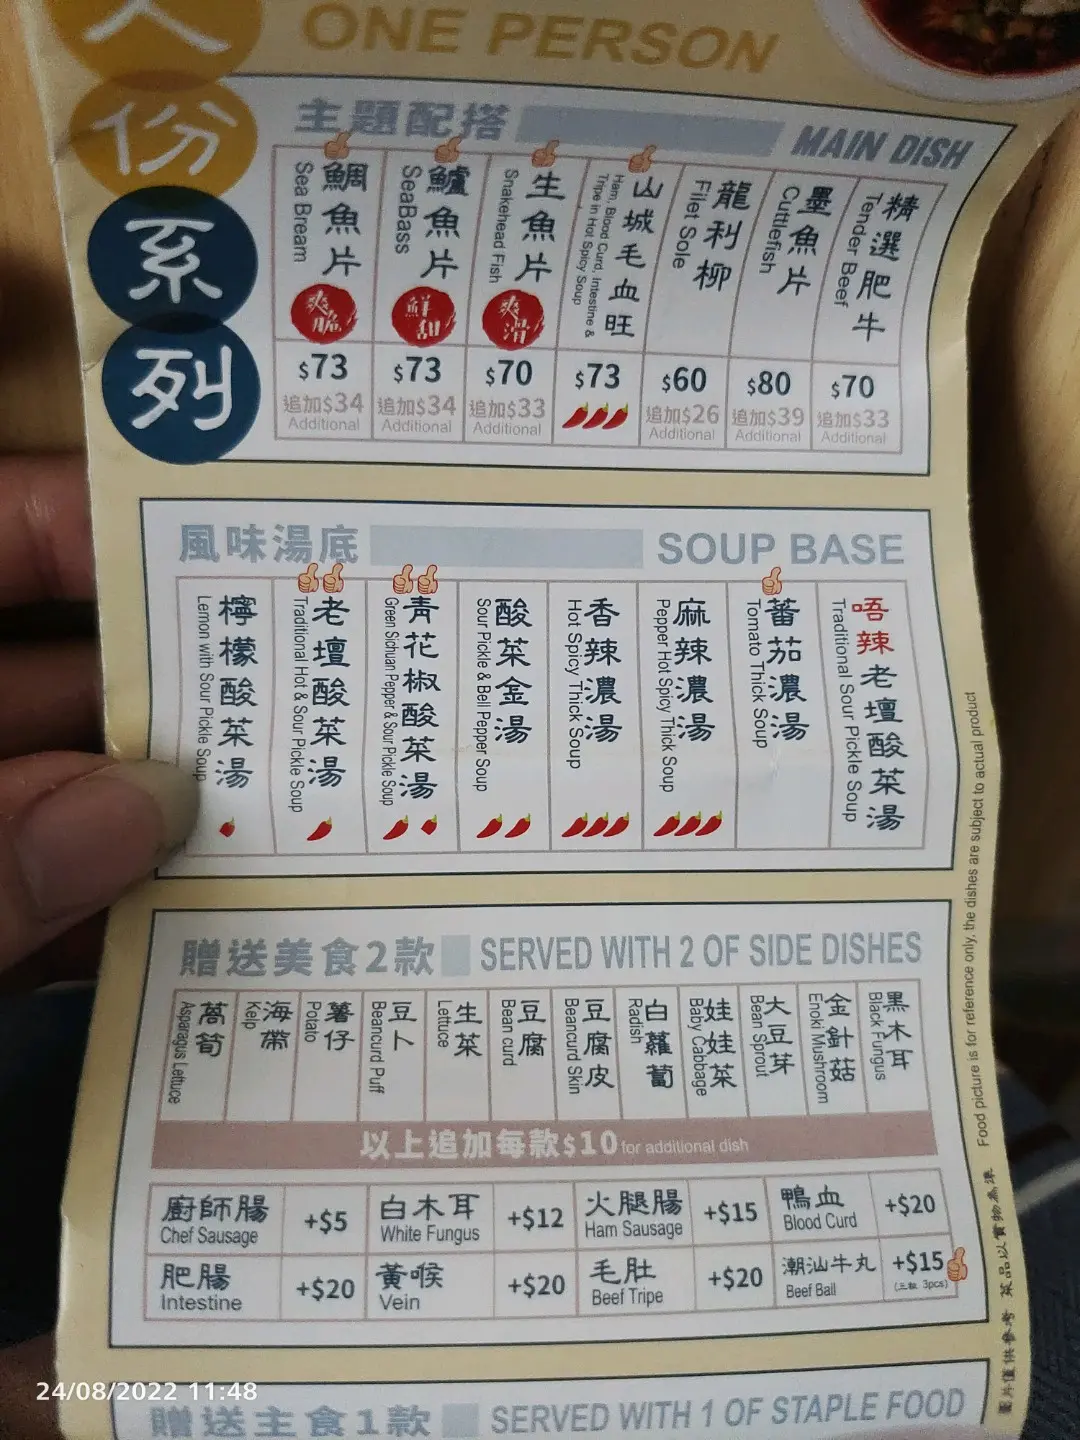 人份系列
ONE PERSON
主題配搭 MAIN DISH
鯛魚片 Sea Bream 爽脆 $73 追加$34 Additional
鱸魚片 SeaBass 鮮甜 $73 追加$34 Additional
生魚片 Snakehead Fish 爽滑 $70 追加$33 Additional
山城毛血旺 Ham, Blood Curd, Intestine & Tripe in Hot Spicy Soup $73
龍利柳 Filet Sole $60 追加$26 Additional
墨魚片 Cuttlefish $80 追加$39 Additional
精選肥牛 Tender Beef $70 追加$33 Additional
風味湯底 SOUP BASE
檸檬酸菜湯 Lemon with Sour Pickle Soup
老壇酸菜湯 Traditional Hot & Sour Pickle Soup
青花椒酸菜湯 Green Sichuan Pepper & Sour Pickle Soup
酸菜金湯 Sour Pickle & Bell Pepper Soup
香辣濃湯 Hot Spicy Thick Soup
麻辣濃湯 Pepper Hot Spicy Thick Soup
蕃茄濃湯 Tomato Thick Soup
唔辣老壇酸菜湯 Traditional Sour Pickle Soup
贈送美食2款 SERVED WITH 2 OF SIDE DISHES
萵筍 Asparagus Lettuce
海帶 Kelp
薯仔 Potato
豆卜 Beancurd Puff
生菜 Lettuce
豆腐 Bean curd
豆腐皮 Beancurd Skin
白蘿蔔 Radish
娃娃菜 Baby Cabbage
大豆芽 Bean Sprout
金針菇 Enoki Mushroom
黑木耳 Black Fungus
以上追加每款$10 for additional dish
廚師腸 Chef Sausage +$5
白木耳 White Fungus +$12
火腿腸 Ham Sausage +$15
鴨血 Blood Curd +$20
肥腸 Intestine +$20
黃喉 Vein +$20
毛肚 Beef Tripe +$20
潮汕牛丸 Beef Ball +$15 (三粒 3pcs)
贈送主食1款 SERVED WITH 1 OF STAPLE FOOD
圖片僅供參考 菜品以實物為準 Food picture is for reference only, the dishes are subject to actual product
24/08/2022 11:48